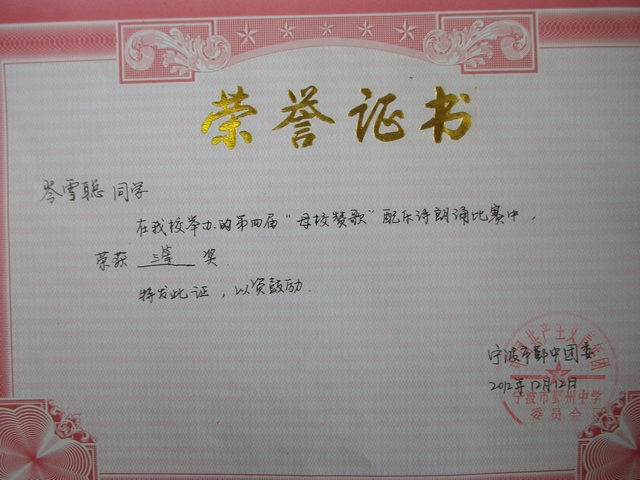 荣誉证书
岑雪聪 同学
在我校举办的第四届“母校赞歌”配乐诗朗诵比赛中，
荣获 三等 奖.
特发此证，以资鼓励.
宁波市鄞中团委
2012年12月12日
宁波市鄞州中学
委员会